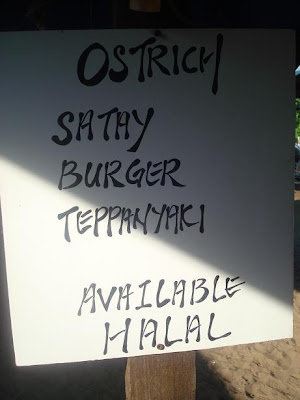 OSTRICH
SATAY
BURGER
TEPPANYAKI
AVAILABLE
HALAL